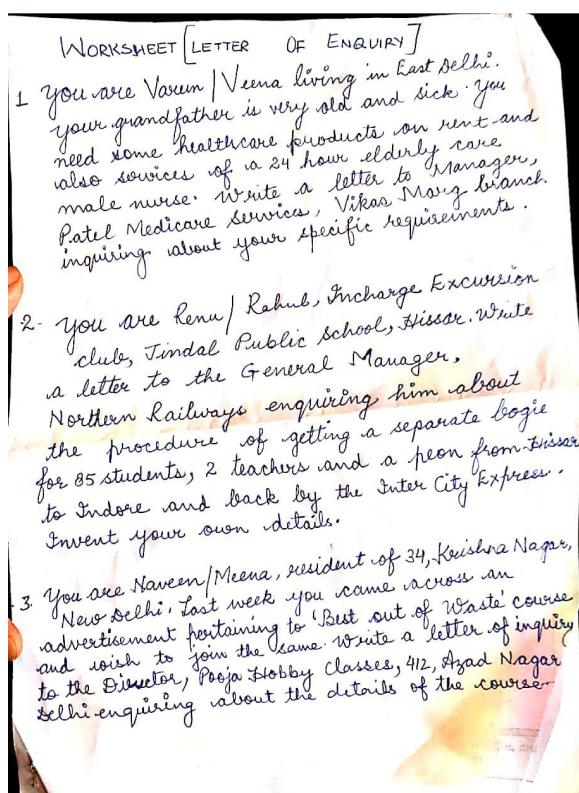 WORKSHEET [LETTER OF ENQUIRY]
1 You are Varun / Veena living in East Delhi.
your grandfather is very old and sick. You
need some healthcare products on rent and
also services of a 24 hour elderly care
male nurse. Write a letter to Manager,
Patel Medicare Services, Vikas Marg branch.
inquiring about your specific requirements.
2- You are Renu / Rahul, Incharge Excursion
club, Jindal Public School, Hissar. Write
a letter to the General Manager,
Northern Railways enquiring him about
the procedure of getting a separate bogie
for 85 students, 2 teachers and a peon from Hissar
to Indore and back by the Inter City Express.
Invent your own details.
3. You are Naveen/Meena, resident of 34, Krishna Nagar,
New Delhi. Last week you came across an
advertisement pertaining to 'Best out of Waste' course
and wish to join the same. Write a letter of inquiry
to the Director, Pooja Hobby Classes, 412, Azad Nagar
Delhi enquiring about the details of the course